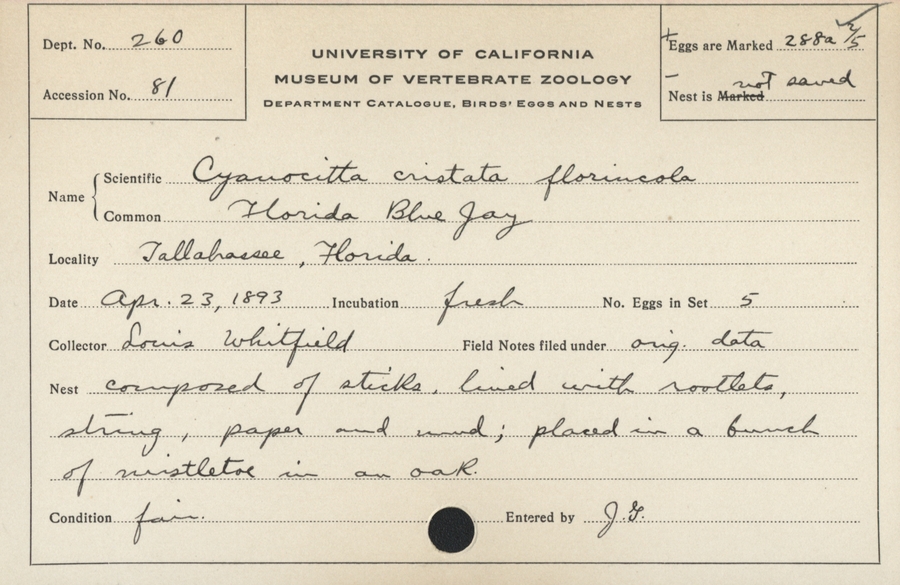 Dept. No. 260
Accession No. 81
UNIVERSITY OF CALIFORNIA
MUSEUM OF VERTEBRATE ZOOLOGY
DEPARTMENT CATALOGUE, BIRDS' EGGS AND NESTS
+ Eggs are Marked 288a 2/5
– not saved
Nest is Marked
Name
Scientific Cyanocitta cristata florincola
Common Florida Blue Jay
Locality Tallahassee, Florida.
Date Apr. 23, 1893 Incubation fresh No. Eggs in Set 5
Collector Louis Whitfield Field Notes filed under orig. data
Nest composed of sticks, lined with rootlets,
string, paper and mud; placed in a bunch
of mistletoe in an oak.
Condition fair. Entered by J.G.